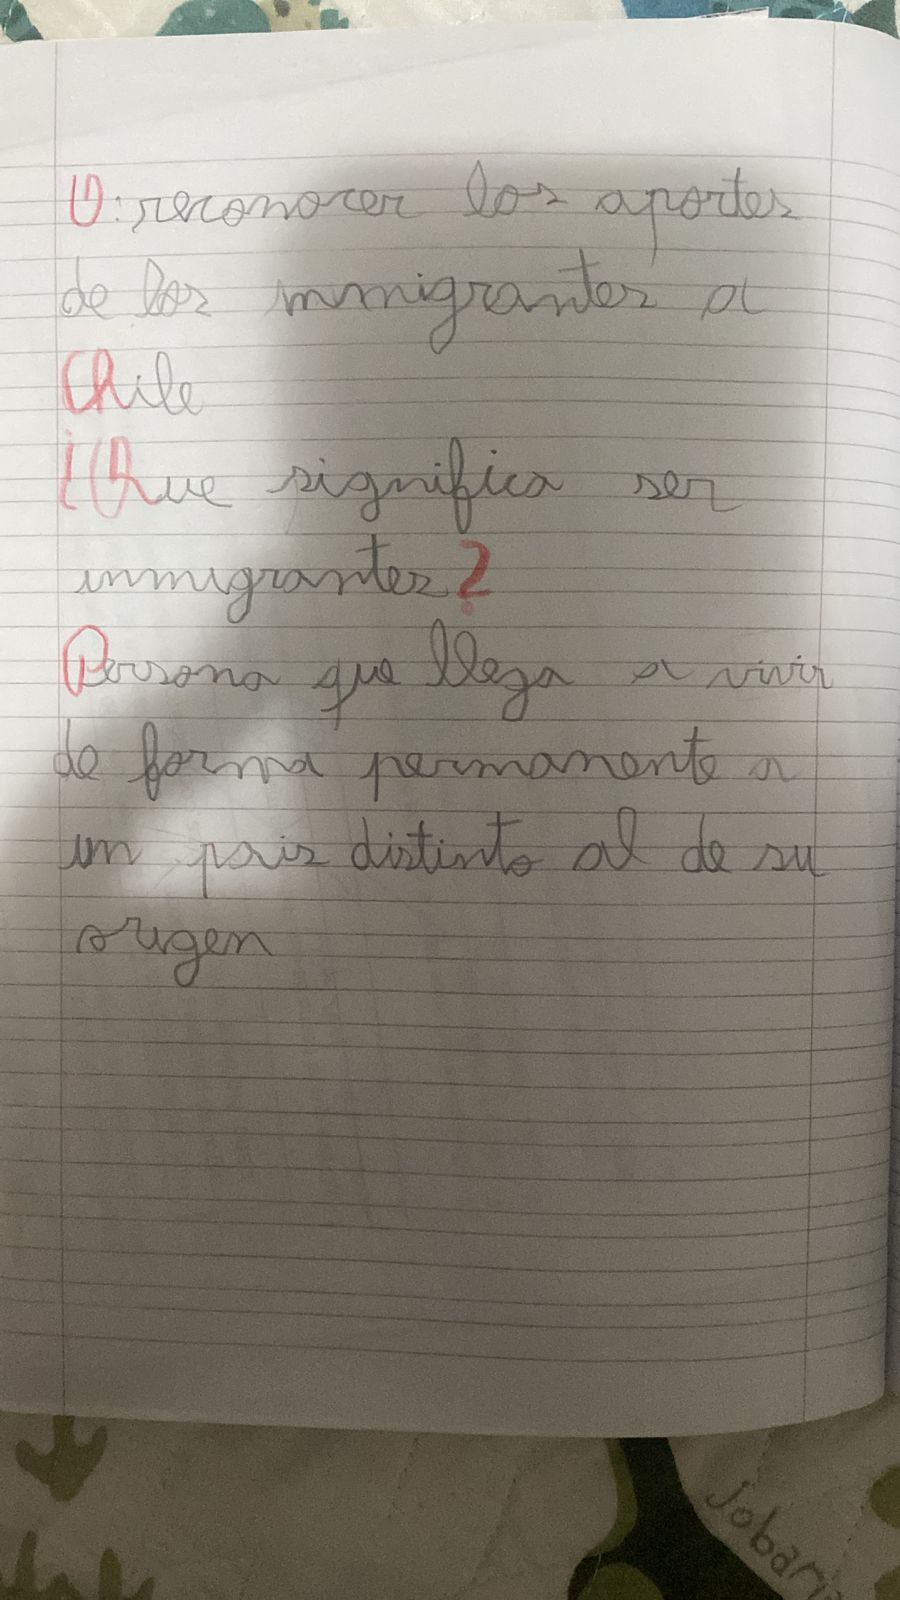 O: reconocer los aportes
de los inmigrantes a
Chile
¿Que significa ser
inmigrantes?
Persona que llega a vivir
de forma permanente a
un pais distinto al de su
origen